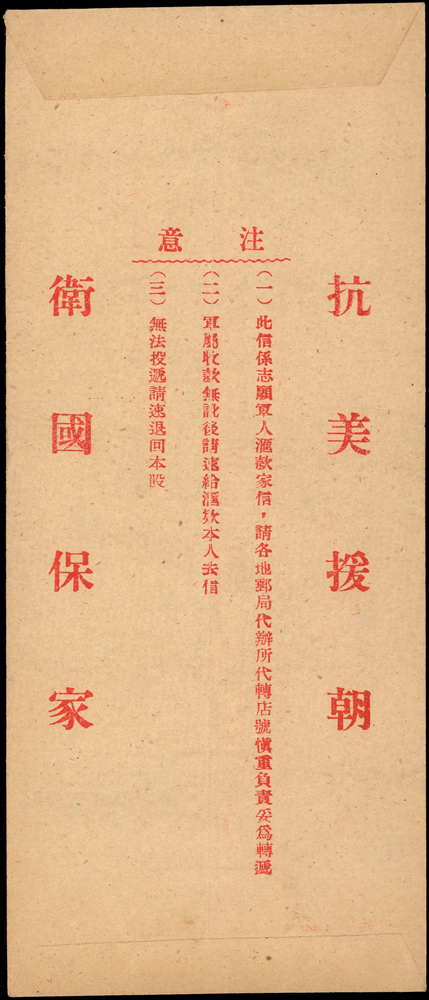 抗美援朝
注意
(一)此信係志願軍人滙款家信,請各地郵局代辦所代轉店號愼重負責妥爲轉遞
(二)軍屬收款無訛後請速給滙欵本人去信
(三)無法投遞請速退回本股
衛國保家